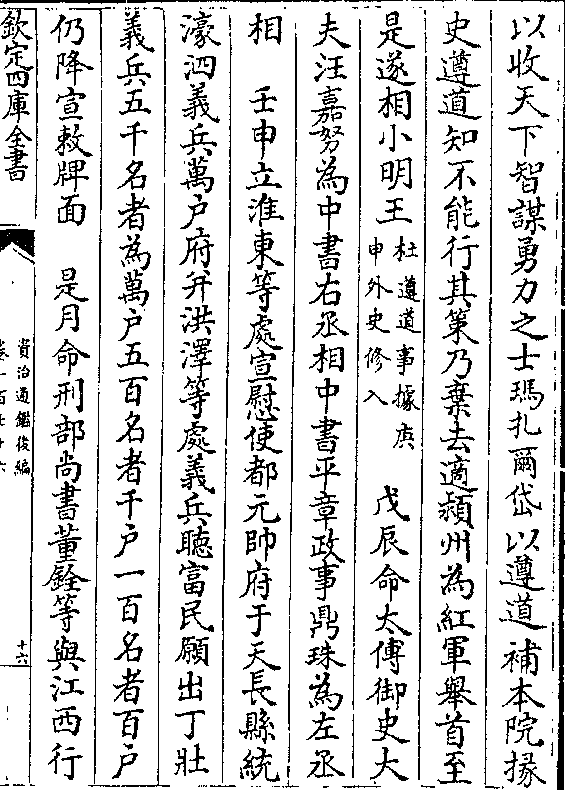 以收天下智謀勇力之士瑪扎爾岱以遵道補本院掾
史遵道知不能行其策乃棄去適潁州為紅軍舉首至
是遂相小明王杜遵道事據庚
申外史修入　戊辰命太傅御史大
夫汪嘉努為中書右丞相中書平章政事鼎珠為左丞
相　壬申立淮東等處宣慰使都元帥府于天長縣統
濠泗義兵萬户府并洪澤等處義兵聽富民願出丁壯
義兵五千名者為萬户五百名者千户一百名者百户
仍降宣敕牌面　是月命刑部尚書董銓等與江西行
欽定四庫全書
資治通鑑後編
十六